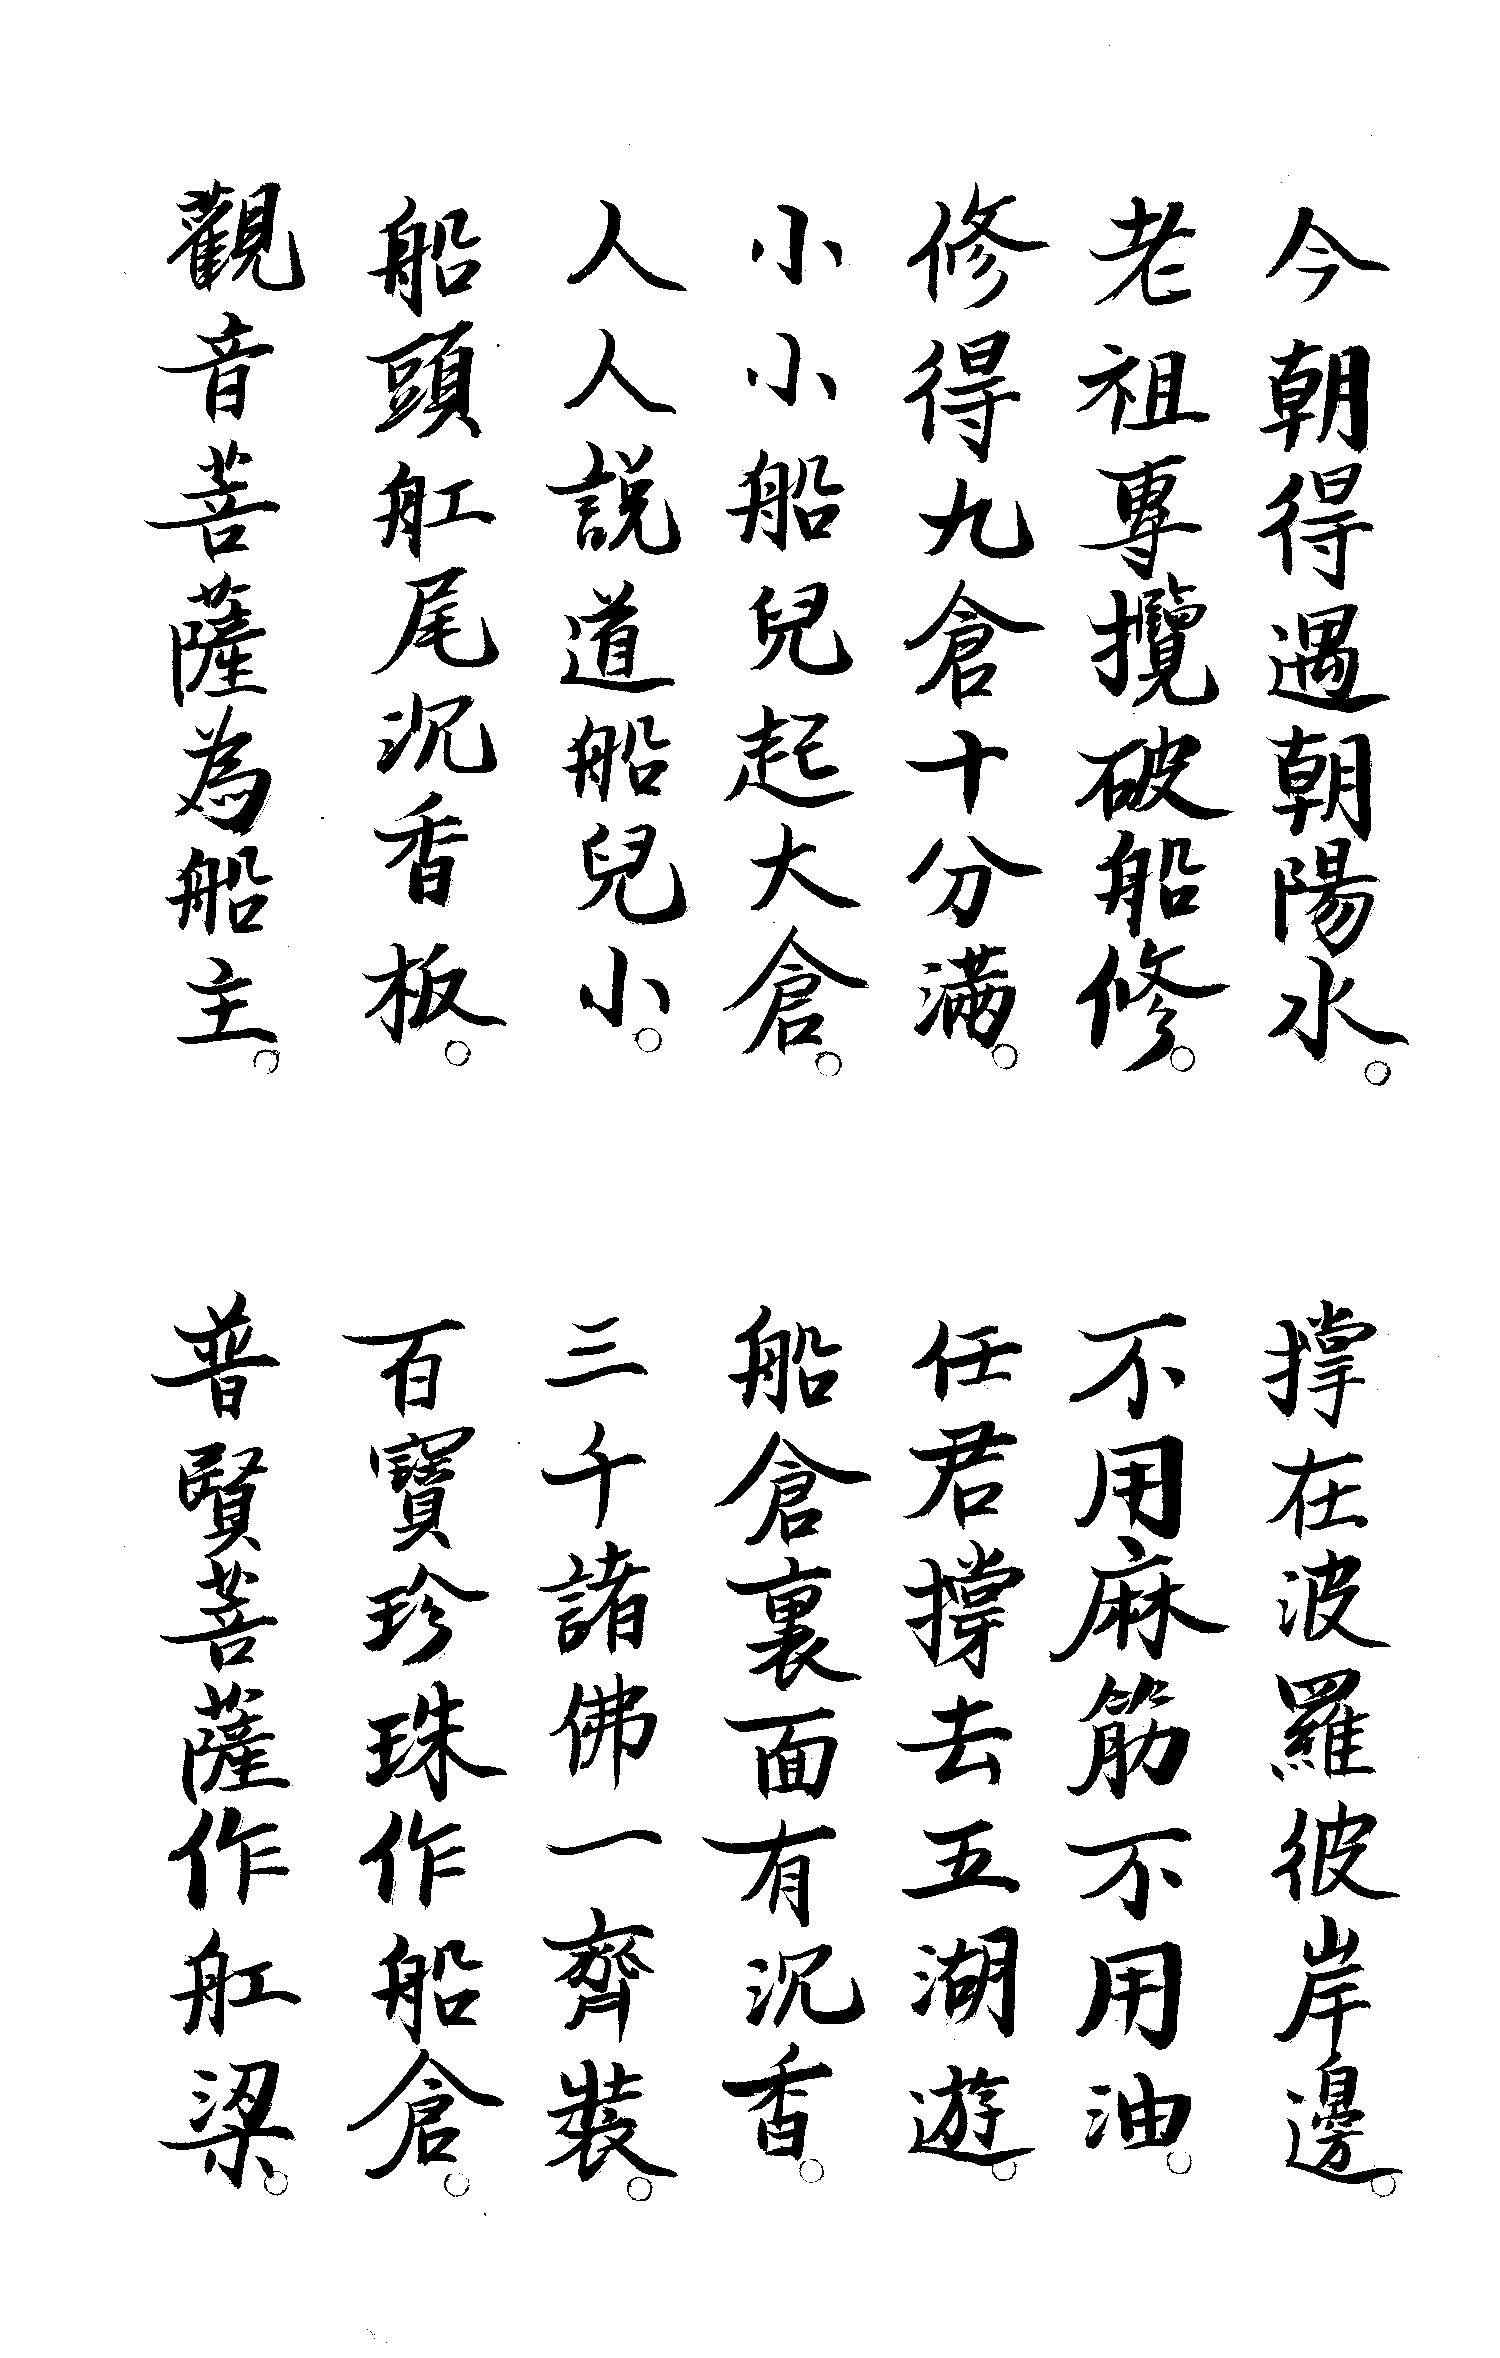 今朝得遇朝陽水。
撐在波羅彼岸邊。
老祖專攬破船修。
不用麻筋不用油。
修得九倉十分滿。
任君撐去五湖遊。
小小船兒起大倉。
船倉裏面有沉香。
人人説道船兒小。
三千諸佛一齊裝。
船頭舡尾沉香板。
百寶珍珠作船倉。
觀音菩薩為船主。
普賢菩薩作舡梁。